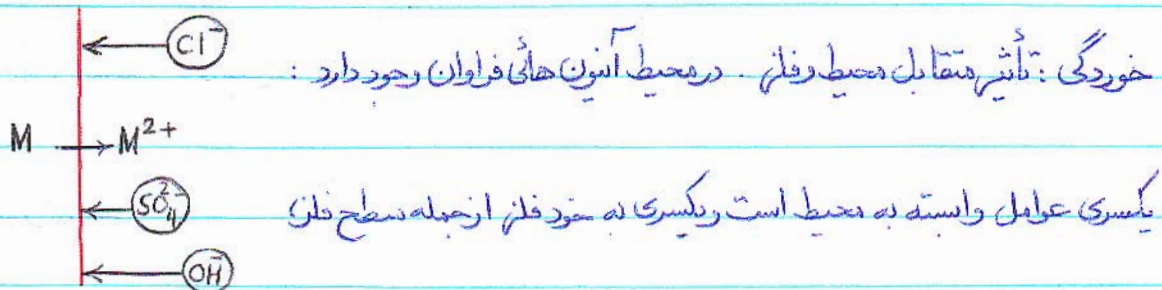 Cl⁻
خوردگی : تأثیر متقابل محیط و فلز . در محیط آنیون هائی فراوان وجود دارد :
M → M²⁺
SO₄²⁻
یکسری عوامل وابسته به محیط است و یکسری به خود فلز از جمله سطح فلز؛
OH⁻